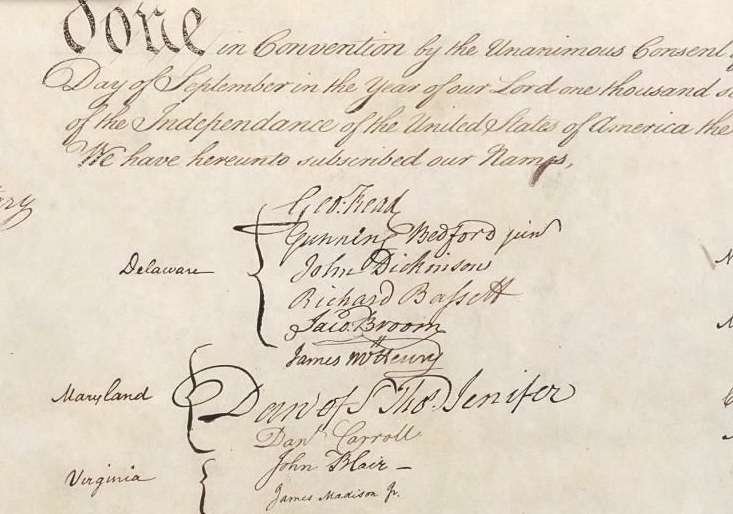 done in Convention by the Unanimous Consent
Day of September in the Year of our Lord one thousand
of the Independance of the United States of America the
We have hereunto subscribed our Names,
Geo: Read
Gunning Bedford jun
John Dickinson
Delaware
Richard Bassett
Jaco: Broom
James McHenry
Maryland
Dan of St Thos. Jenifer
Danl Carroll
John Blair –
Virginia
James Madison Jr.